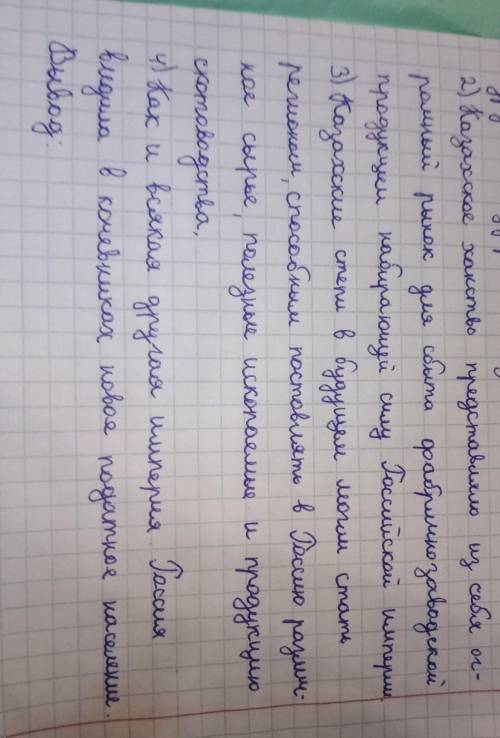 2) Казахское ханство представляло из себя ог-
ромный рынок для сбыта фабричнозаводской
продукции набирающей силу Российской империи.
3) Казахские степи в будущем могли стать
регионом, способным поставлять в Россию различ-
ное сырье, полезные ископаемые и продукцию
скотоводства,
4) Как и всякая другая империя Россия
видила в кочевниках новое податное население.
Вывод: